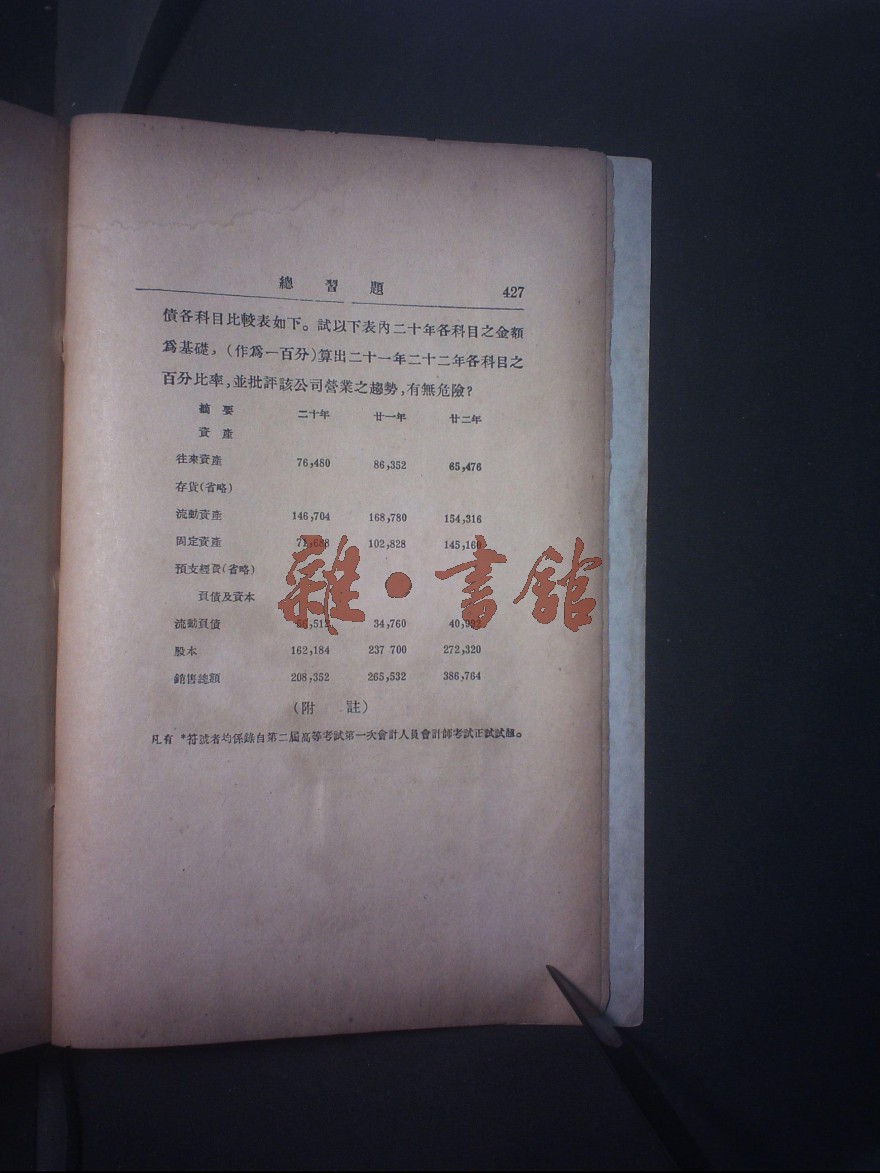 總習題 427
債各科目比較表如下。試以下表內二十年各科目之金額
爲基礎，(作爲一百分)算出二十一年二十二年各科目之
百分比率，並批評該公司營業之趨勢，有無危險？
摘要 二十年 廿一年 廿二年
資產
往來資產 76,480 86,352 65,476
存貨(省略)
流動資產 146,704 168,780 154,316
固定資產 102,828
預支經費(省略)
負債及資本
流動負債 34,760
股本 162,184 237 700 272,320
銷售總額 208,352 265,532 386,764
(附註)
凡有 *符號者均係錄自第二屆高等考試第一次會計人員會計師考試正試試題。
雜·書館